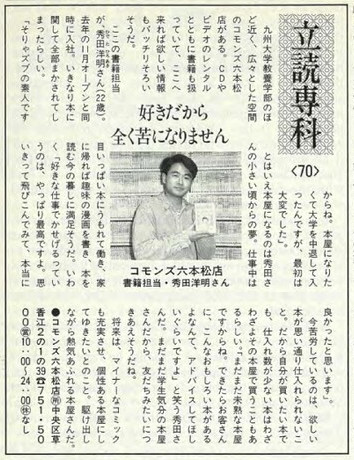 立読専科
〈70〉
九州大学教養学部のほ
ど近く、広々とした空間
のコモンズ六本松
店がある。CDや
ビデオのレンタル
とともに書籍も扱
っていて、ここへ
来れば欲しい情報
もバッチリそろい
そうだ。
ここの書籍担当
が、秀田洋明さん(22歳)。
去年の11月オープンと同
時に入社。いきなり本に
関して全部まかされてし
まったらしい。
「そりゃズブの素人です
好きだから
全く苦になりません
コモンズ六本松店
書籍担当・秀田洋明さん
からね。本屋になりた
くて大学を中退して入
ったんですが、最初は
大変でした」。
とはいえ本屋になるのは秀田さ
んの小さい頃からの夢。仕事中は
目いっぱい本にうもれて働き、家
に帰れば趣味の漫画を書き、本を
読む今の暮しに満足そうだ。いわ
く「好きな仕事でかせげるってい
うのは、やっぱり最高ですよ。思
いきって飛びこんでみて、本当に
良かったと思います」。
今苦労しているのは、欲しい
本が思い通り仕入れられないこ
と。だから自分が買いたい本で
も、仕入れ数が少ない本はわざ
わざよその本屋で買うこともあ
るらしい。「まだまだ未熟な本屋
ですからね。できたらお客さん
に、こんなおもしろい本がある
よなんて、アドバイスしてほし
いぐらいですよ」と笑う秀田さ
ん。まだまだ学生気分の本屋
さんだから、友だちみたいにつ
きあえそうだね。
将来は、マイナーなコミック
も充実させ、個性ある本屋にし
てゆきたいとのこと。駆け出し
ながら熱気あふれる本屋さんだ。
●コモンズ六本松店㊟中央区草
香江2の1の39☎751・50
00㊡10:00〜24:00㊡なし